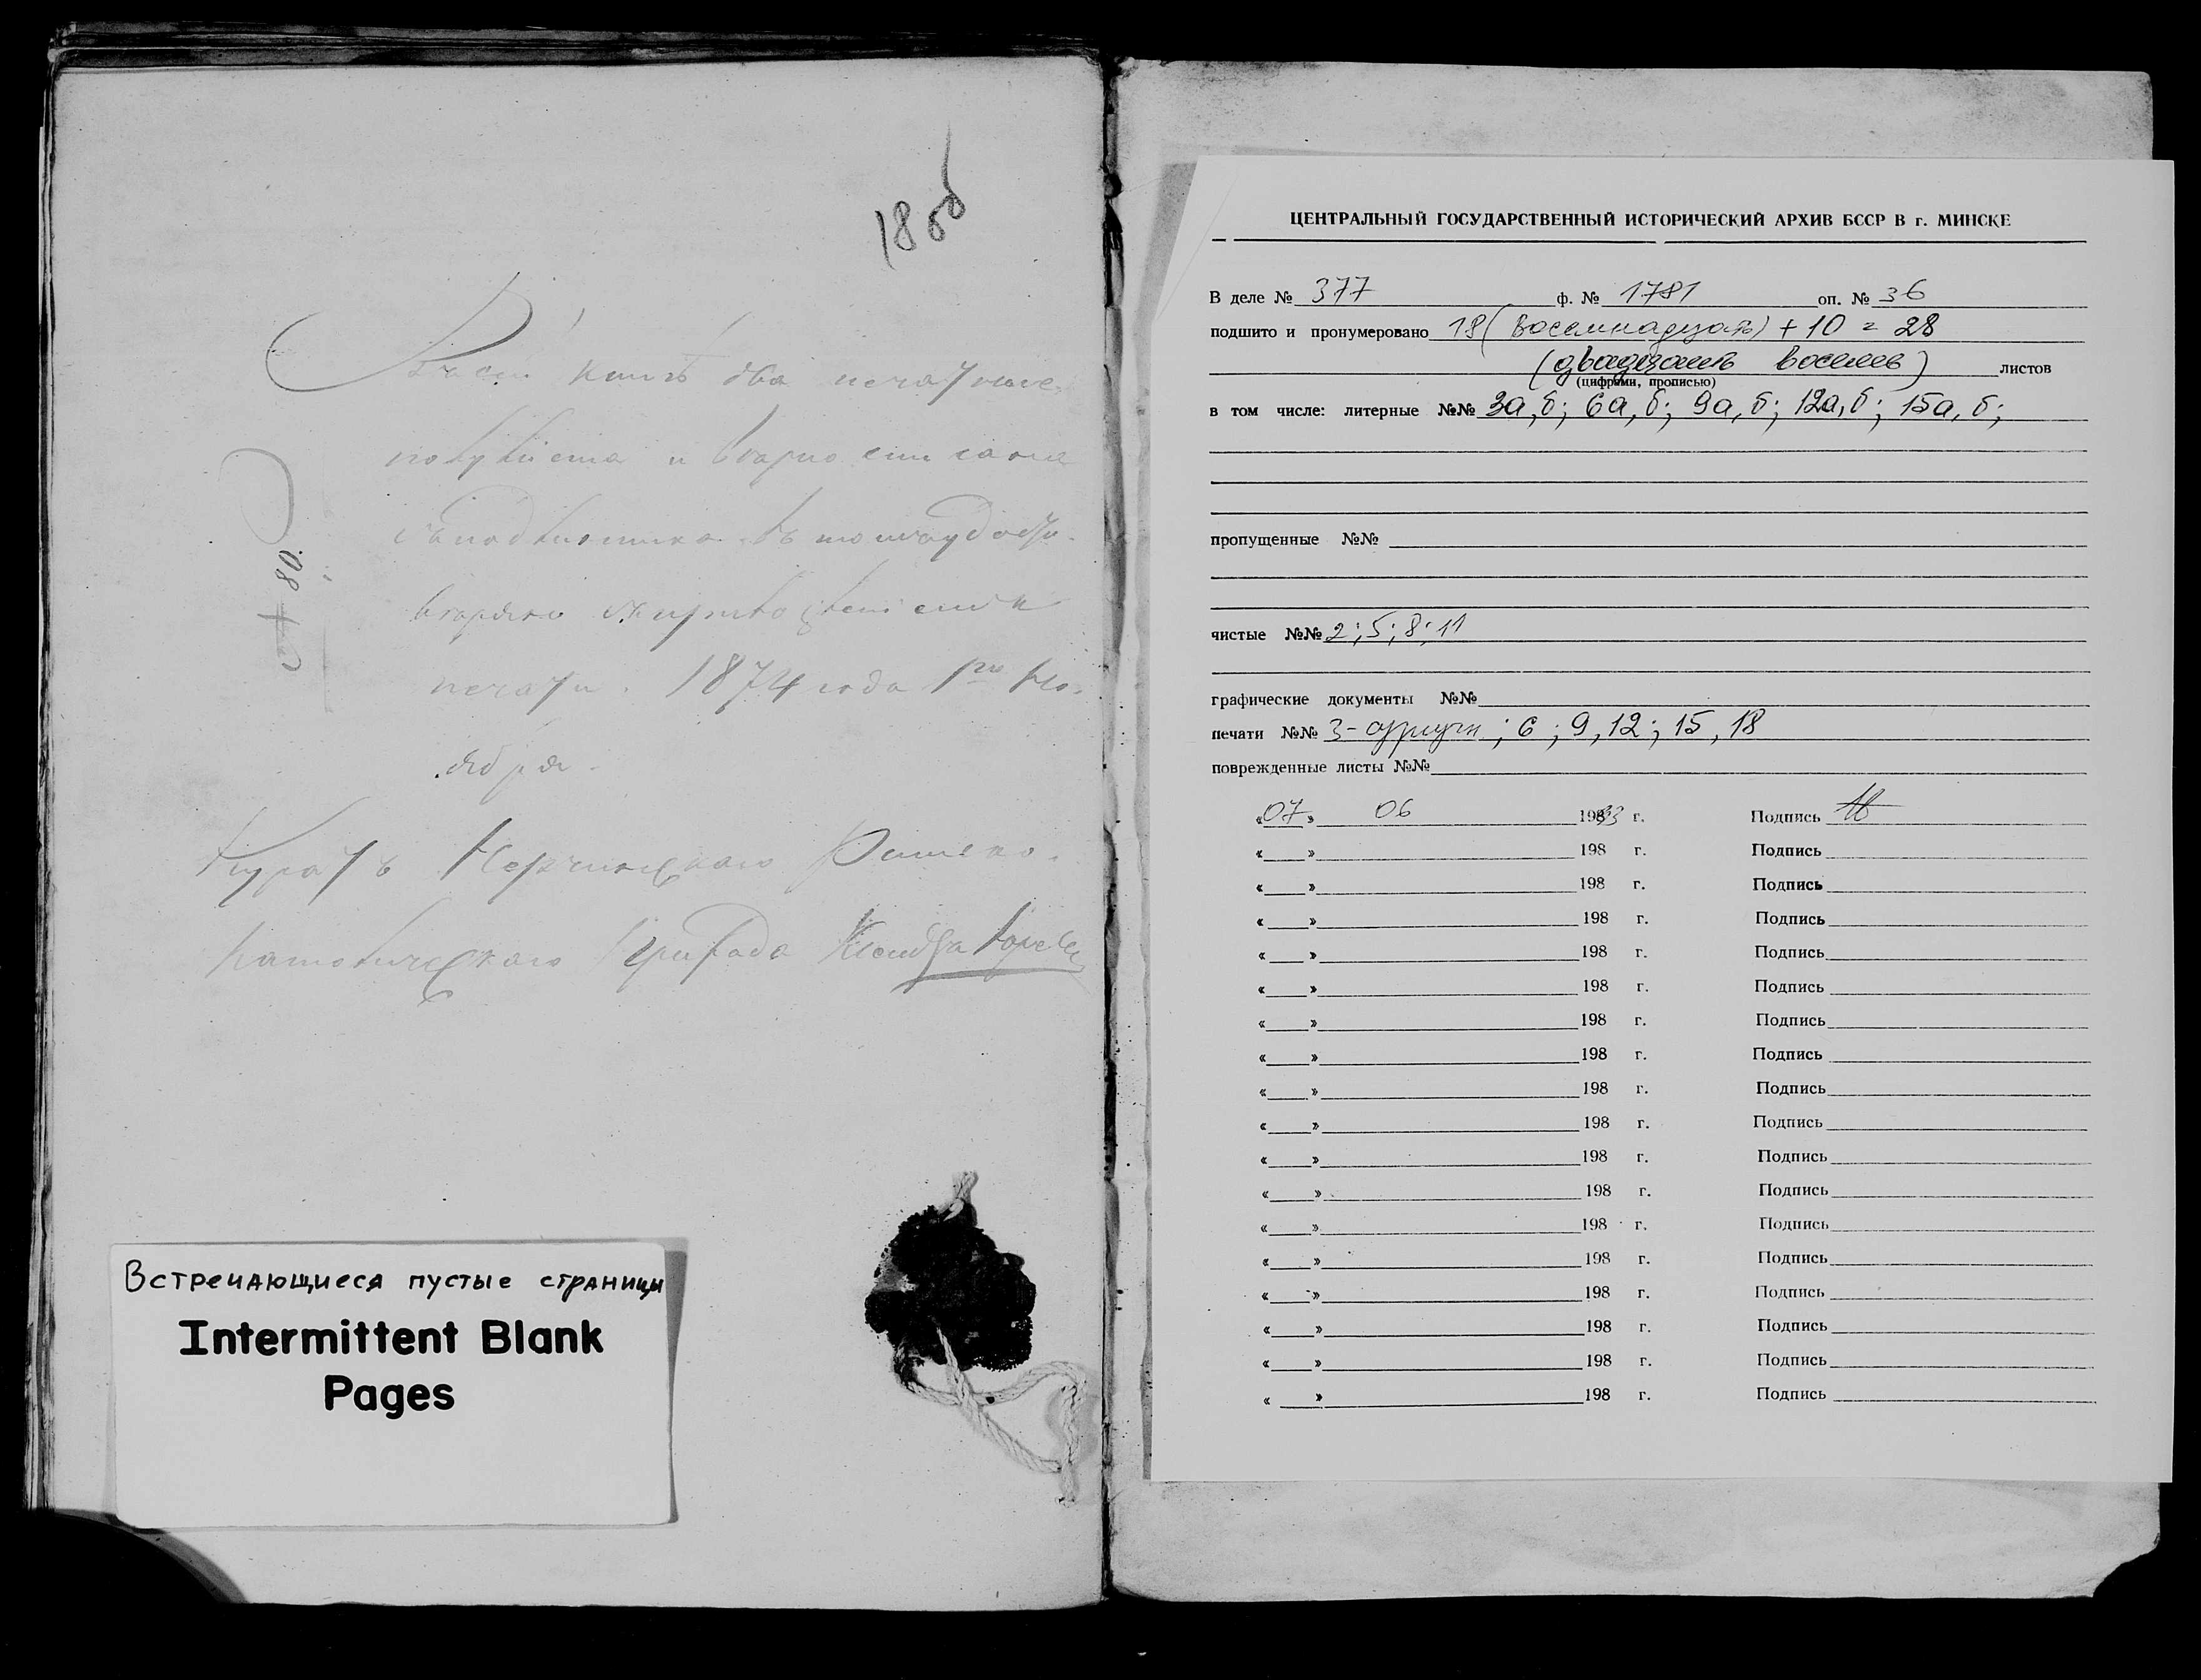 18об
книгѣ два печатные
полулиста и
въ томъ удосто-
вѣряю съ приложеніемъ
печати. 1874 года 1го Но-
ября.
Куратъ Керчинскаго Римско-
католическаго Прихода Ксендзъ
Встречающиеся пустые страницы
Intermittent Blank
Pages
ЦЕНТРАЛЬНЫЙ ГОСУДАРСТВЕННЫЙ ИСТОРИЧЕСКИЙ АРХИВ БССР В г. МИНСКЕ
В деле № 377 ф. № 1781 оп. № 36
подшито и пронумеровано 18 (восемнадцать) + 10 = 28
(двадцать восемь) листов
(цифрами, прописью)
в том числе: литерные №№ 3а,б; 6а,б; 9а,б; 12а,б; 15а,б;
пропущенные №№
чистые №№ 2; 5; 8; 11
графические документы №№
печати №№ 3- ; 6 ; 9, 12; 15, 18
поврежденные листы №№
«07» 06 1983 г. Подпись
« » 198 г. Подпись
« » 198 г. Подпись
« » 198 г. Подпись
« » 198 г. Подпись
« » 198 г. Подпись
« » 198 г. Подпись
« » 198 г. Подпись
« » 198 г. Подпись
« » 198 г. Подпись
« » 198 г. Подпись
« » 198 г. Подпись
« » 198 г. Подпись
« » 198 г. Подпись
« » 198 г. Подпись
« » 198 г. Подпись
« » 198 г. Подпись
« » 198 г. Подпись